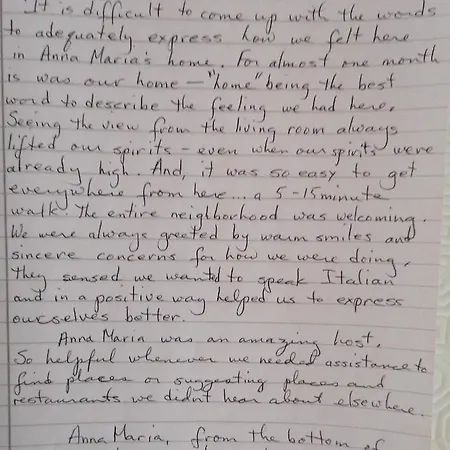 It is difficult to come up with the words
to adequately express how we felt here
in Anna Maria's home. For almost one month
is was our home – "home" being the best
word to describe the feeling we had here.
Seeing the view from the living room always
lifted our spirits – even when our spirits were
already high. And, it was so easy to get
everywhere from here... a 5-15 minute
walk. The entire neiglborhood was welcoming.
We were always greeted by warm smiles and
sincere concerns for how we were doing.
They sensed we wanted to speak Italian
and in a positive way helped us to express
ourselves better.
Anna Maria was an amazing host.
So helpful whenever we needed assistance to
find places or suggesting places and
restaurants we didn't hear about elsewhere.
Anna Maria, from the bottom of